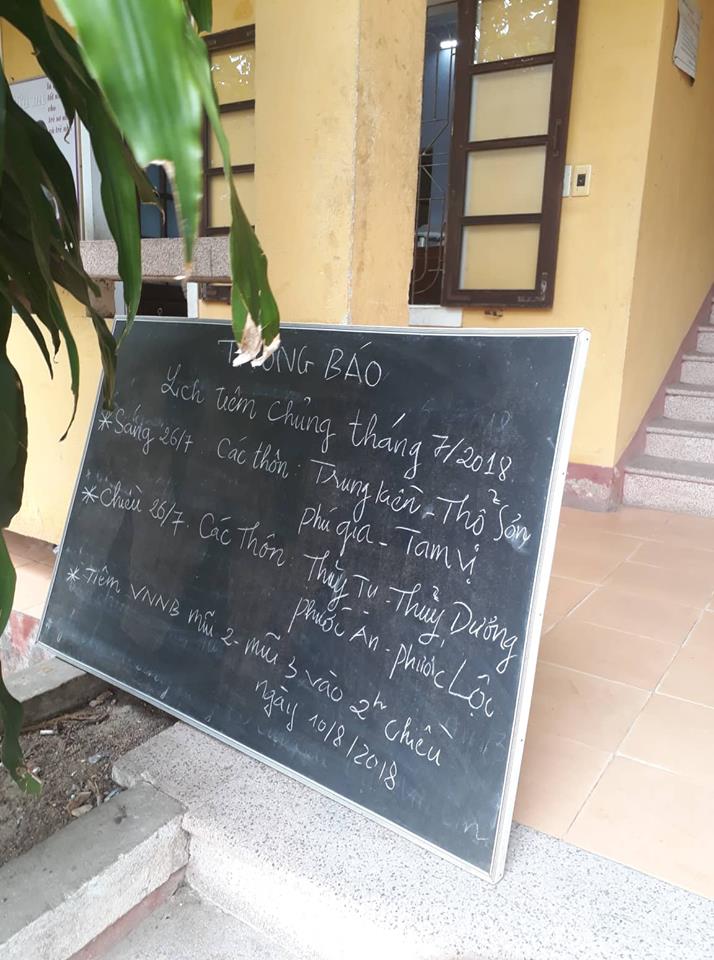 BÁO
Lịch tiêm chủng tháng 7/2018
* Sáng 26/7. Các thôn: Trung Kiền - Thổ Sơn
Phú gia - Tam Vị
* Chiều 26/7. Các Thôn: Thủy Tụ - Thủy Dương
Phước An - Phước Lộc
* Tiêm VNNB mũi 2 - mũi 3 vào 2h chiều
ngày 10/8/2018